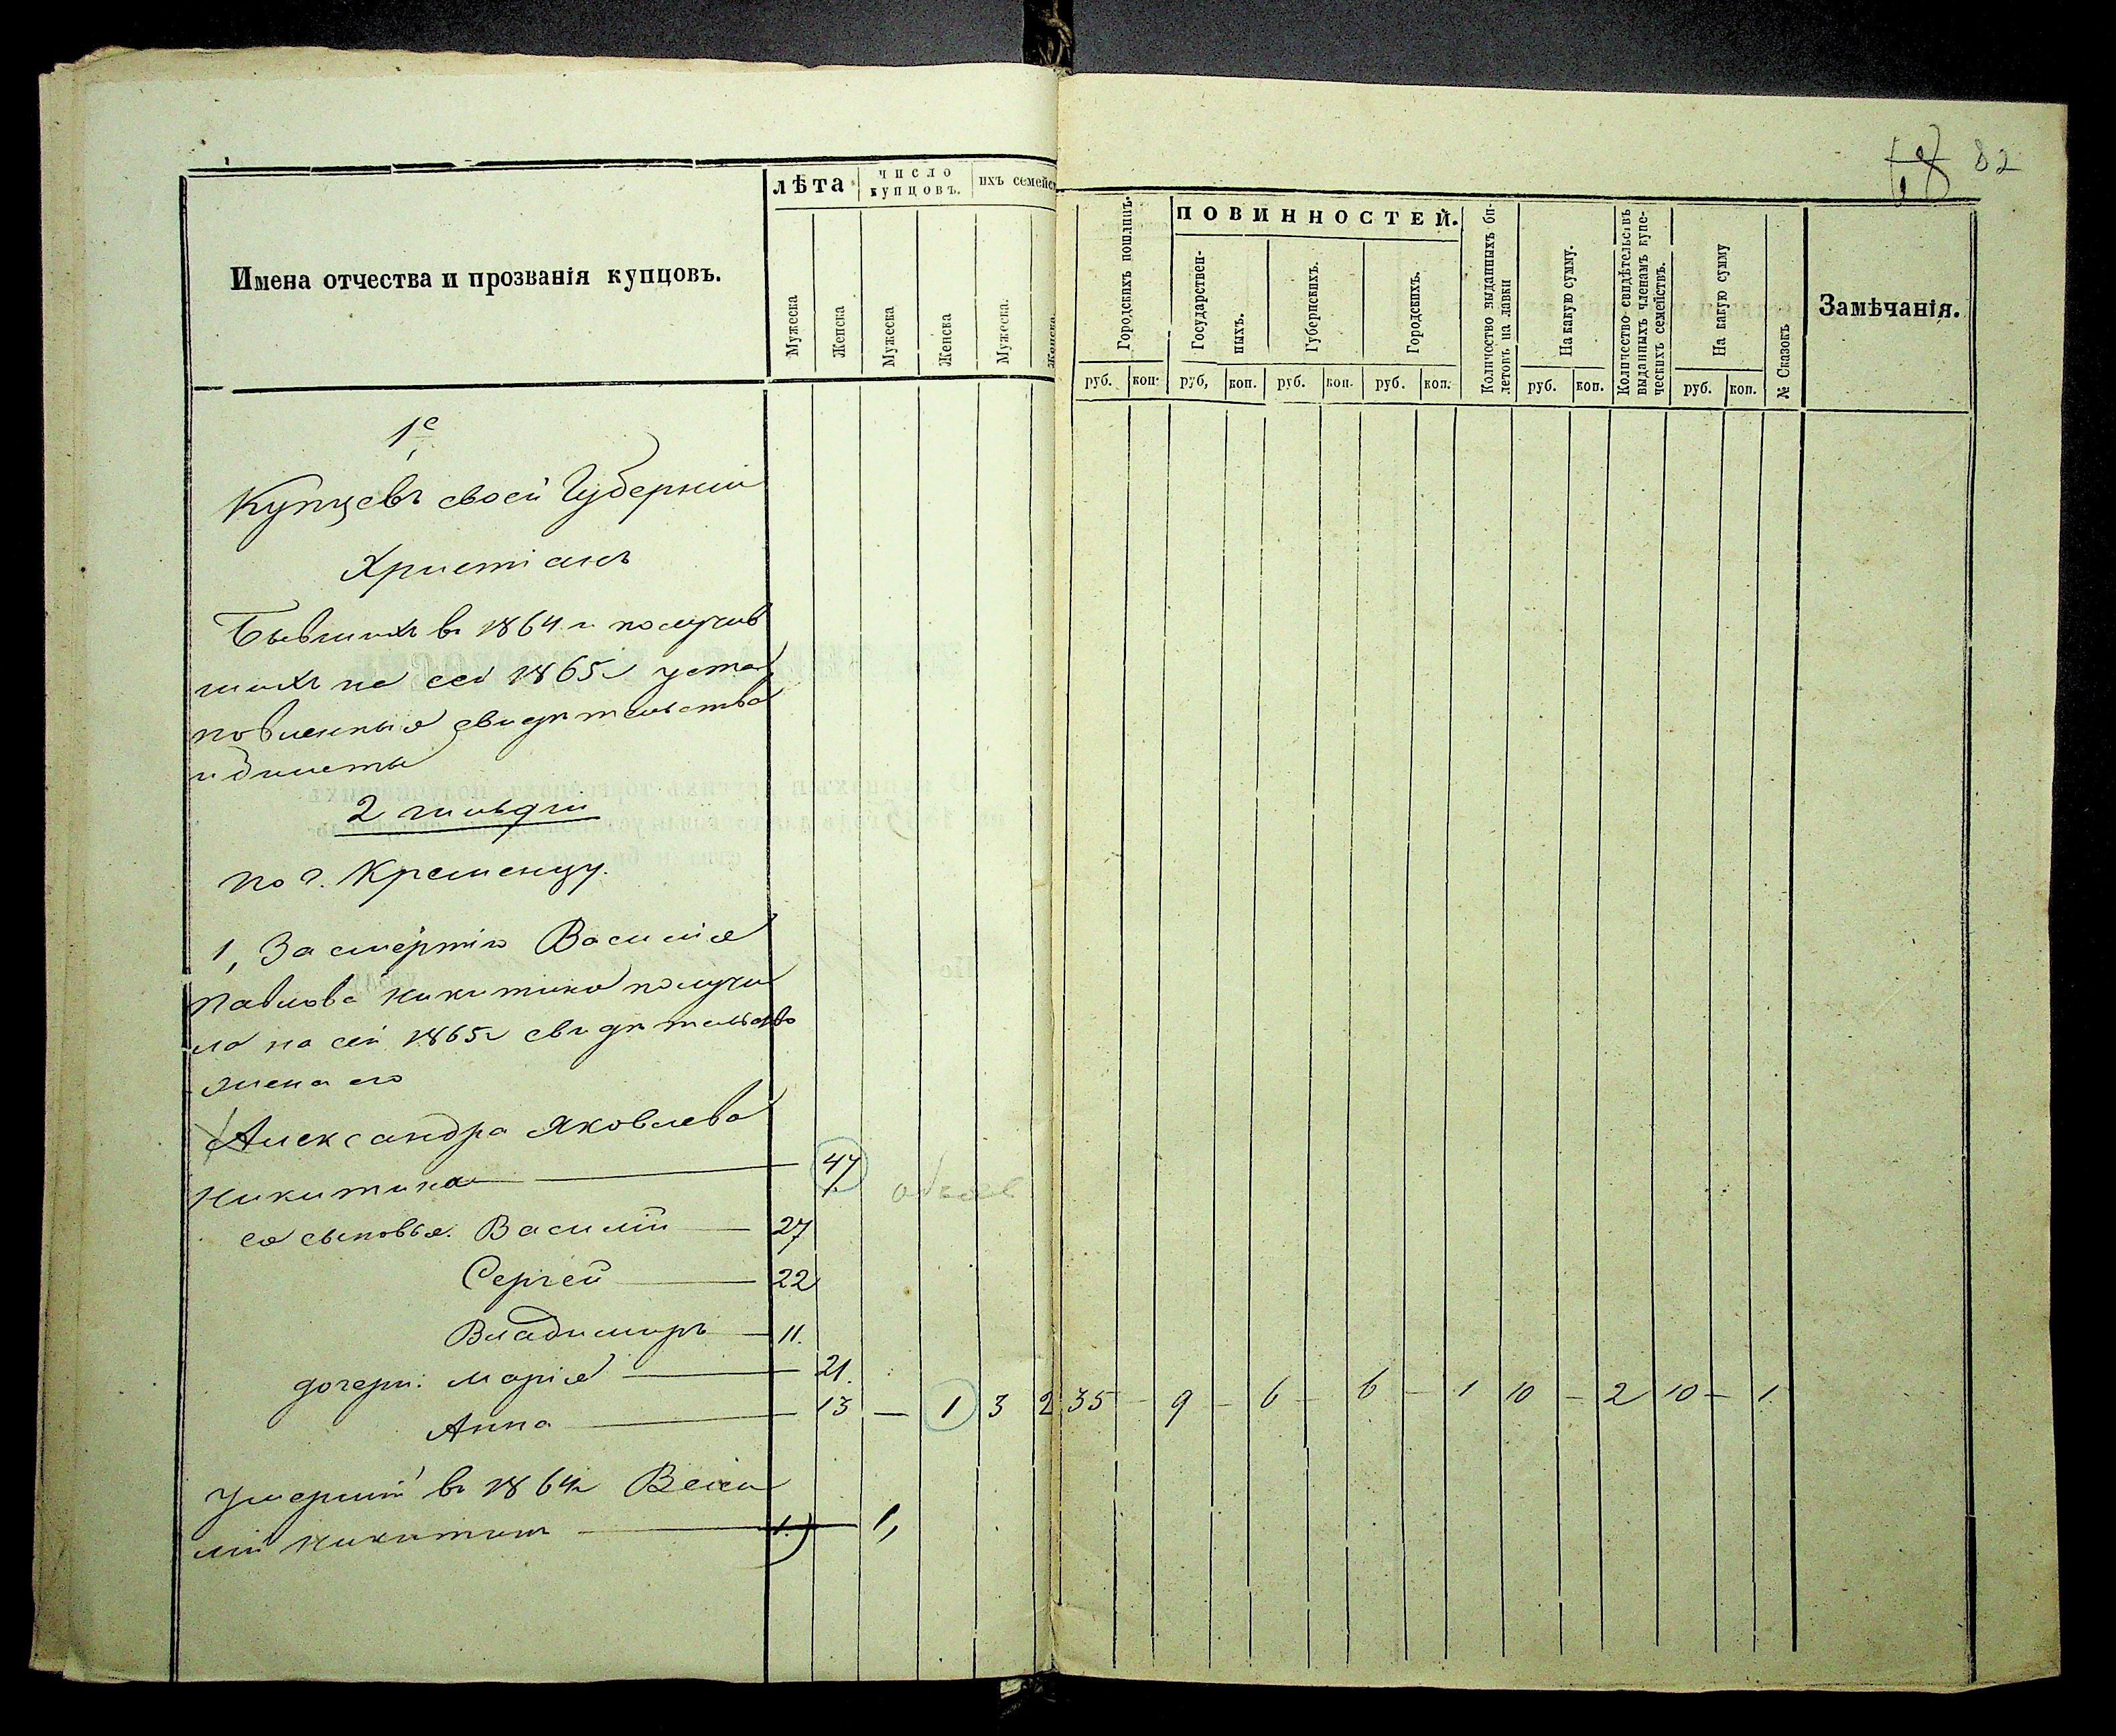 82
Имена отчества и прозванія купцовъ.
лѣта
число купцовъ.
ихъ семейс
Мужеска
Женска
Мужеска
Женска
Мужеска.
Женска
Городскихъ пошлинъ.
ПОВИННОСТЕЙ.
Государственныхъ.
Губернскихъ.
Городскихъ.
Количество выданныхъ билетовъ на лавки
На какую сумму.
Количество свидѣтельствъ выданныхъ членамъ купеческихъ семействъ.
На какую сумму
№ Сказокъ
Замѣчанія.
руб. коп. руб, коп. руб. коп. руб. коп. руб. коп. руб. коп.
1е
Купцевъ своей Губерніи
Христіанъ
Бывшихъ въ 1864 г получив
шихъ на сей 1865 г уста
новленныя свидѣтельства
и билеты
2 гильдіи
по г. Кременцу.
1, За смертію Василія
Павлова Никитина получи
ла на сей 1865 г свидѣтельство
жена его
Александра Яковлева
Никитина — 47
ея сыновья: Василій — 27
Сергей — 22
Владимиръ — 11.
дочери: Марія — 21.
Анна — 13 — 1 3 2 35 — 9 — 6 — 6 — 1 10 — 2 10 — 1.
Умершій въ 1864 г Васи
лій Никитинъ — 1. 1,